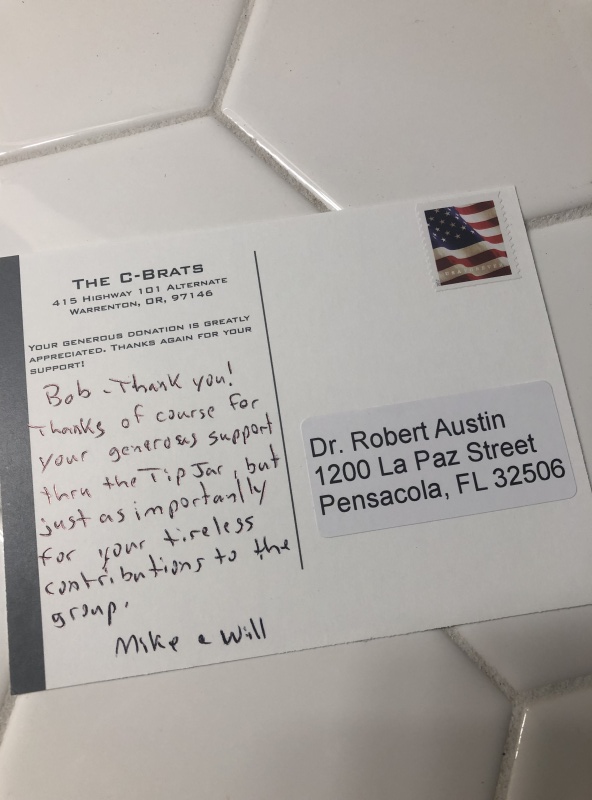 THE C-BRATS
415 HIGHWAY 101 ALTERNATE
WARRENTON, OR, 97146
YOUR GENEROUS DONATION IS GREATLY
APPRECIATED. THANKS AGAIN FOR YOUR
SUPPORT!
Bob - Thank you!
Thanks of course for
your generous support
thru the Tip Jar, but
just as importanlly
for your tireless
contributions to the
group.
Mike & Will
Dr. Robert Austin
1200 La Paz Street
Pensacola, FL 32506